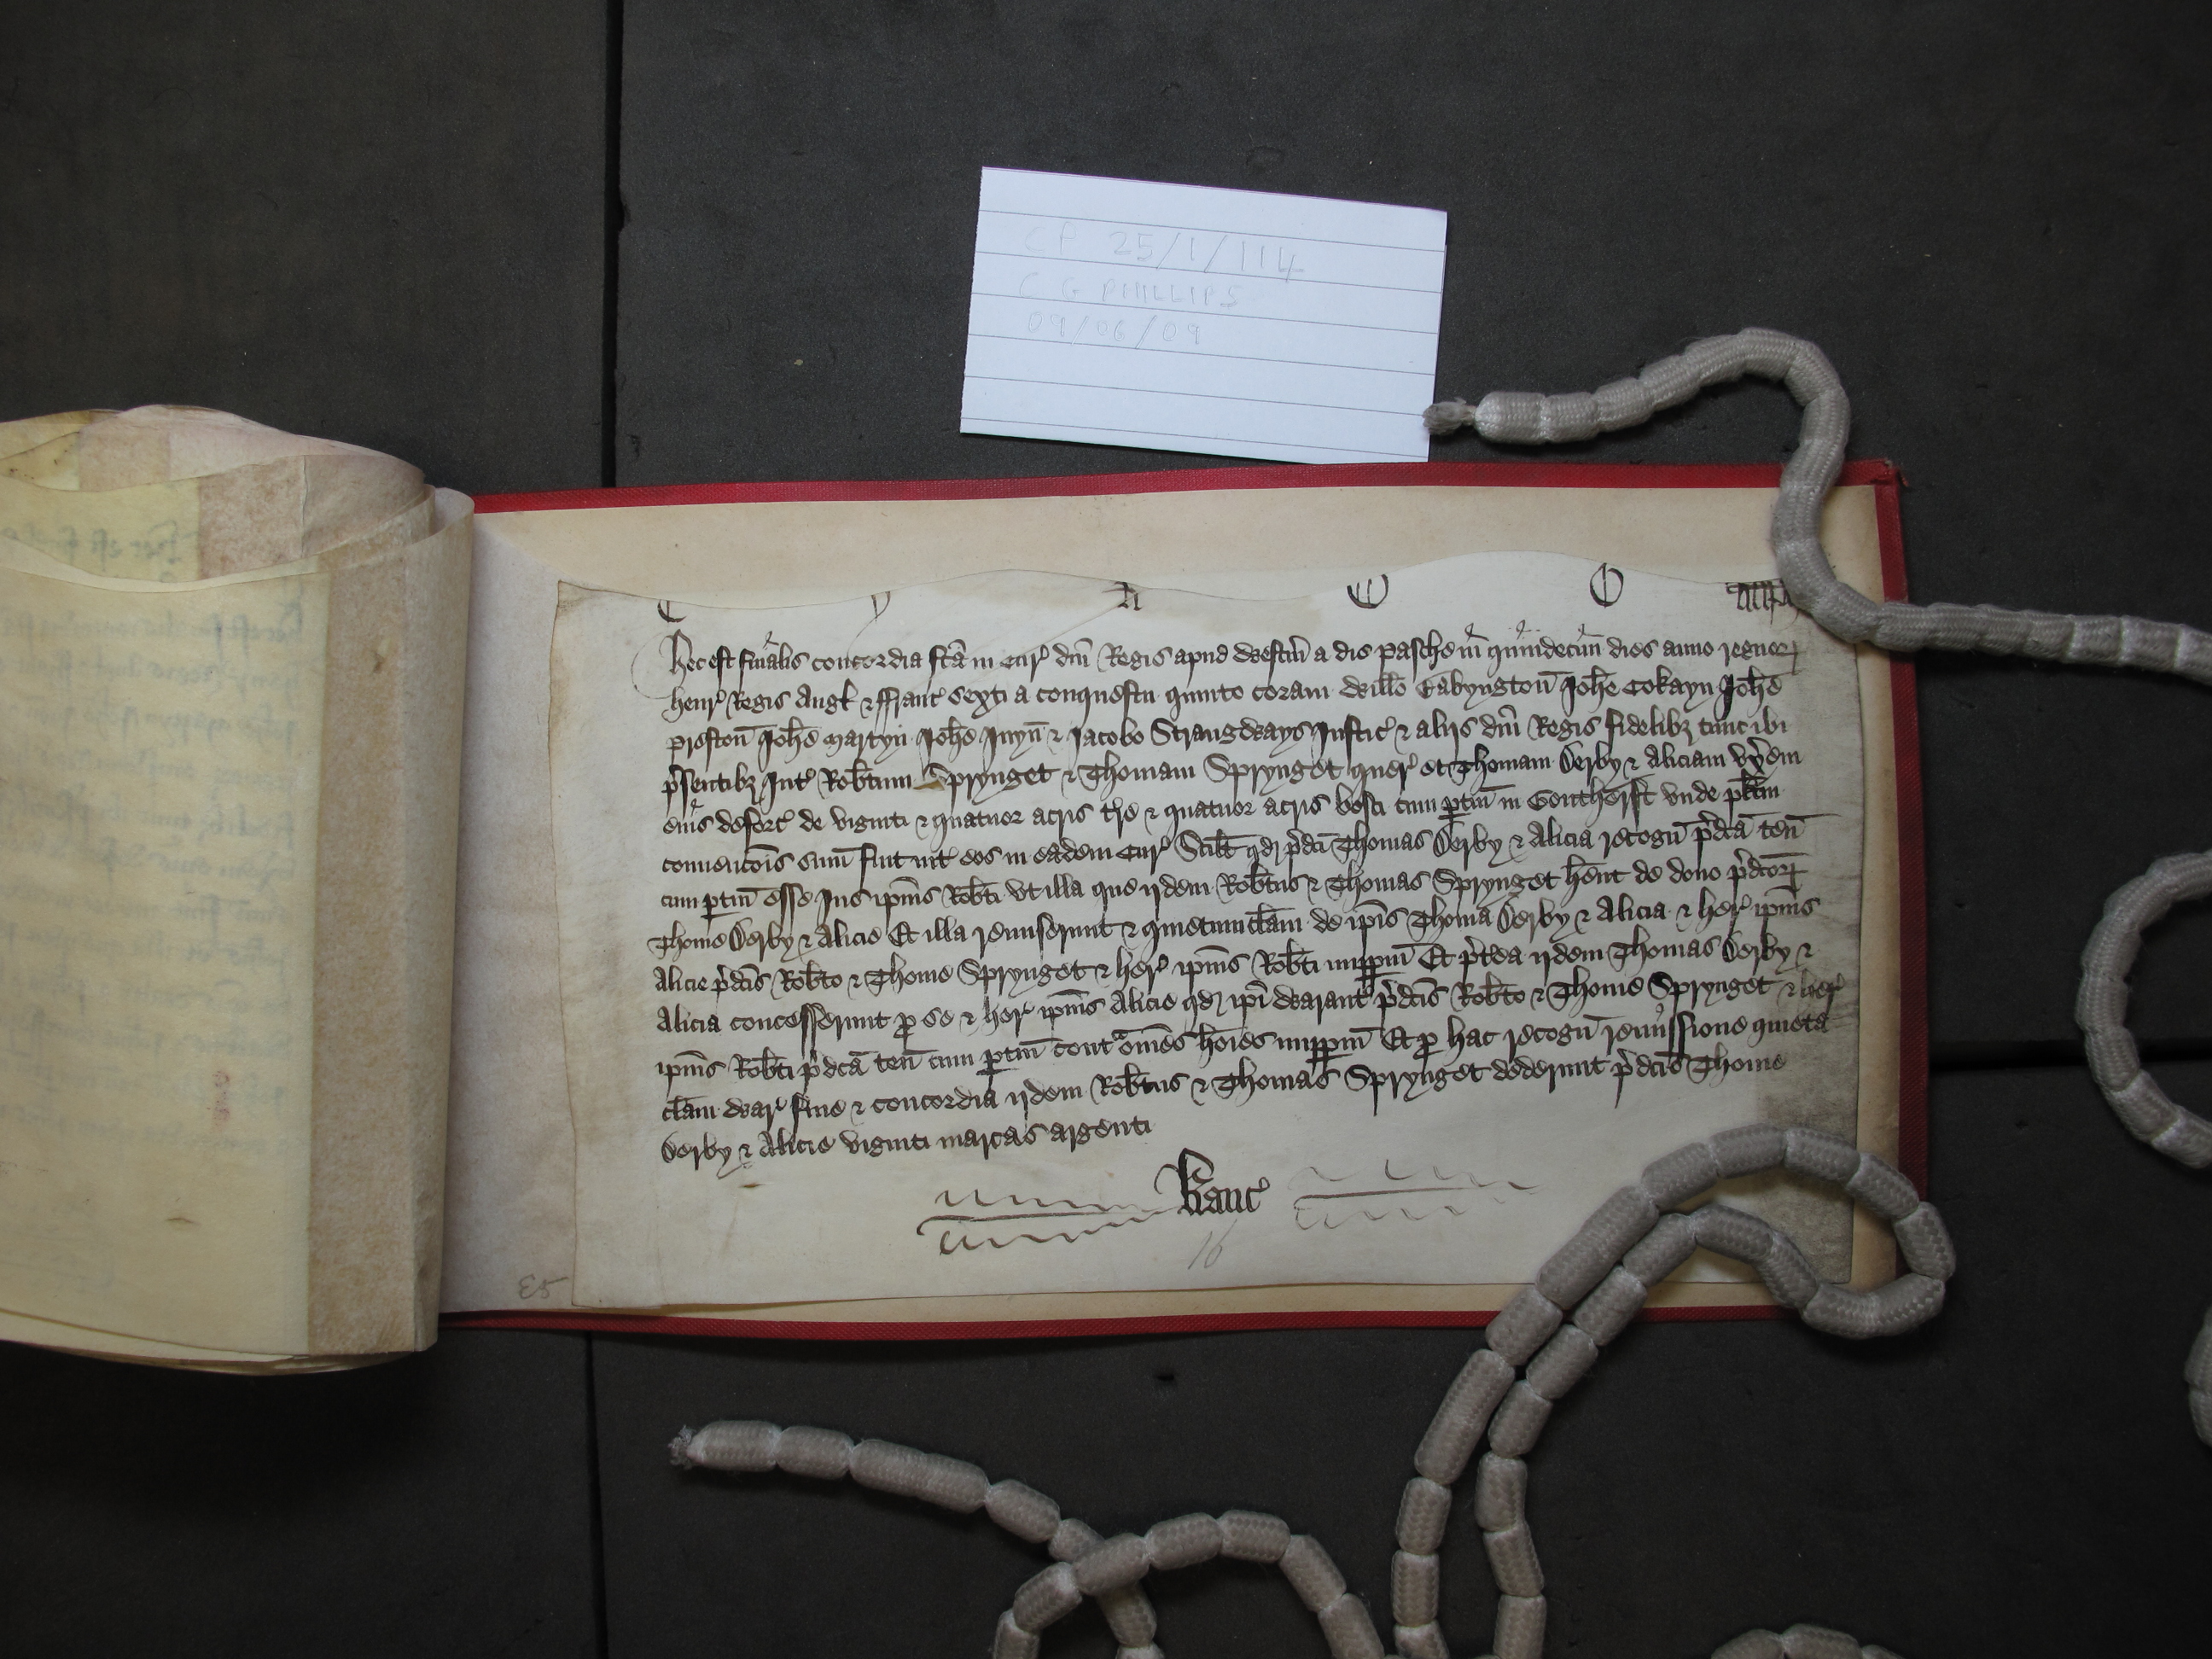 CP 25/1/114
C G PHILLIPS
09/06/09
Hec est finalis concordia fcã in cur' dñi Regis apud Westm̃ a die Pasche in quindecim dies anno regnoꝝ
Henr' Regis Angƚ & ffranc' sexti a conquestu quinto coram Willo Babyngton̄ Joħe Cokayn Joħe
Preston̄ Joħe Martyn Joħe Juyn̄ & Jacobo Strangways Justic' & aliis dñi Regis fidelibȝ tunc ibi
p'sentibȝ Int' Roƀtum Sprynget & Thomam Sprynget quer' et Thomam Derby & Aliciam vx̄em
eius deforc' de viginti & quatuor acris t're & quatuor acris bosci cum ꝑtiñ in Goutherst vnde pƚitm
conuencõis sum̃ fuit int' eos in eadem cur' Sciƚt qđ p'dc̃i Thomas Derby & Alicia recogñ p'dc̃a teñ
cum ꝑtiñ esse Jus ip̃ius Roƀti vt illa que ijdem Roƀtus & Thomas Sprynget hẽnt de dono p'dc̃oꝝ
Thome Derby & Alicie Et illa remiserunt & quietumclam̃ de ip̃is Thoma Derby & Alicia & her' ip̃ius
Alicie p'dc̃is Roƀto & Thome Sprynget & her' ip̃ius Roƀti imꝑꝑm̃ Et p't'ea ijdem Thomas Derby &
Alicia concesserunt ꝑ se & her' ip̃ius Alicie qđ ip̃i Warant' p'dc̃is Roƀto & Thome Sprynget & her'
ip̃ius Roƀti p'dc̃a teñ cum ꝑtiñ cont̃ om̃es hõies imꝑꝑm̃ Et ꝑ hac recogñ remissione quieta
clam̃ War' fine & concordia ijdem Roƀtus & Thomas Sprynget dederunt p'dc̃is Thome
Derby & Alicie viginti marcas argenti
Kanc'
16
E5